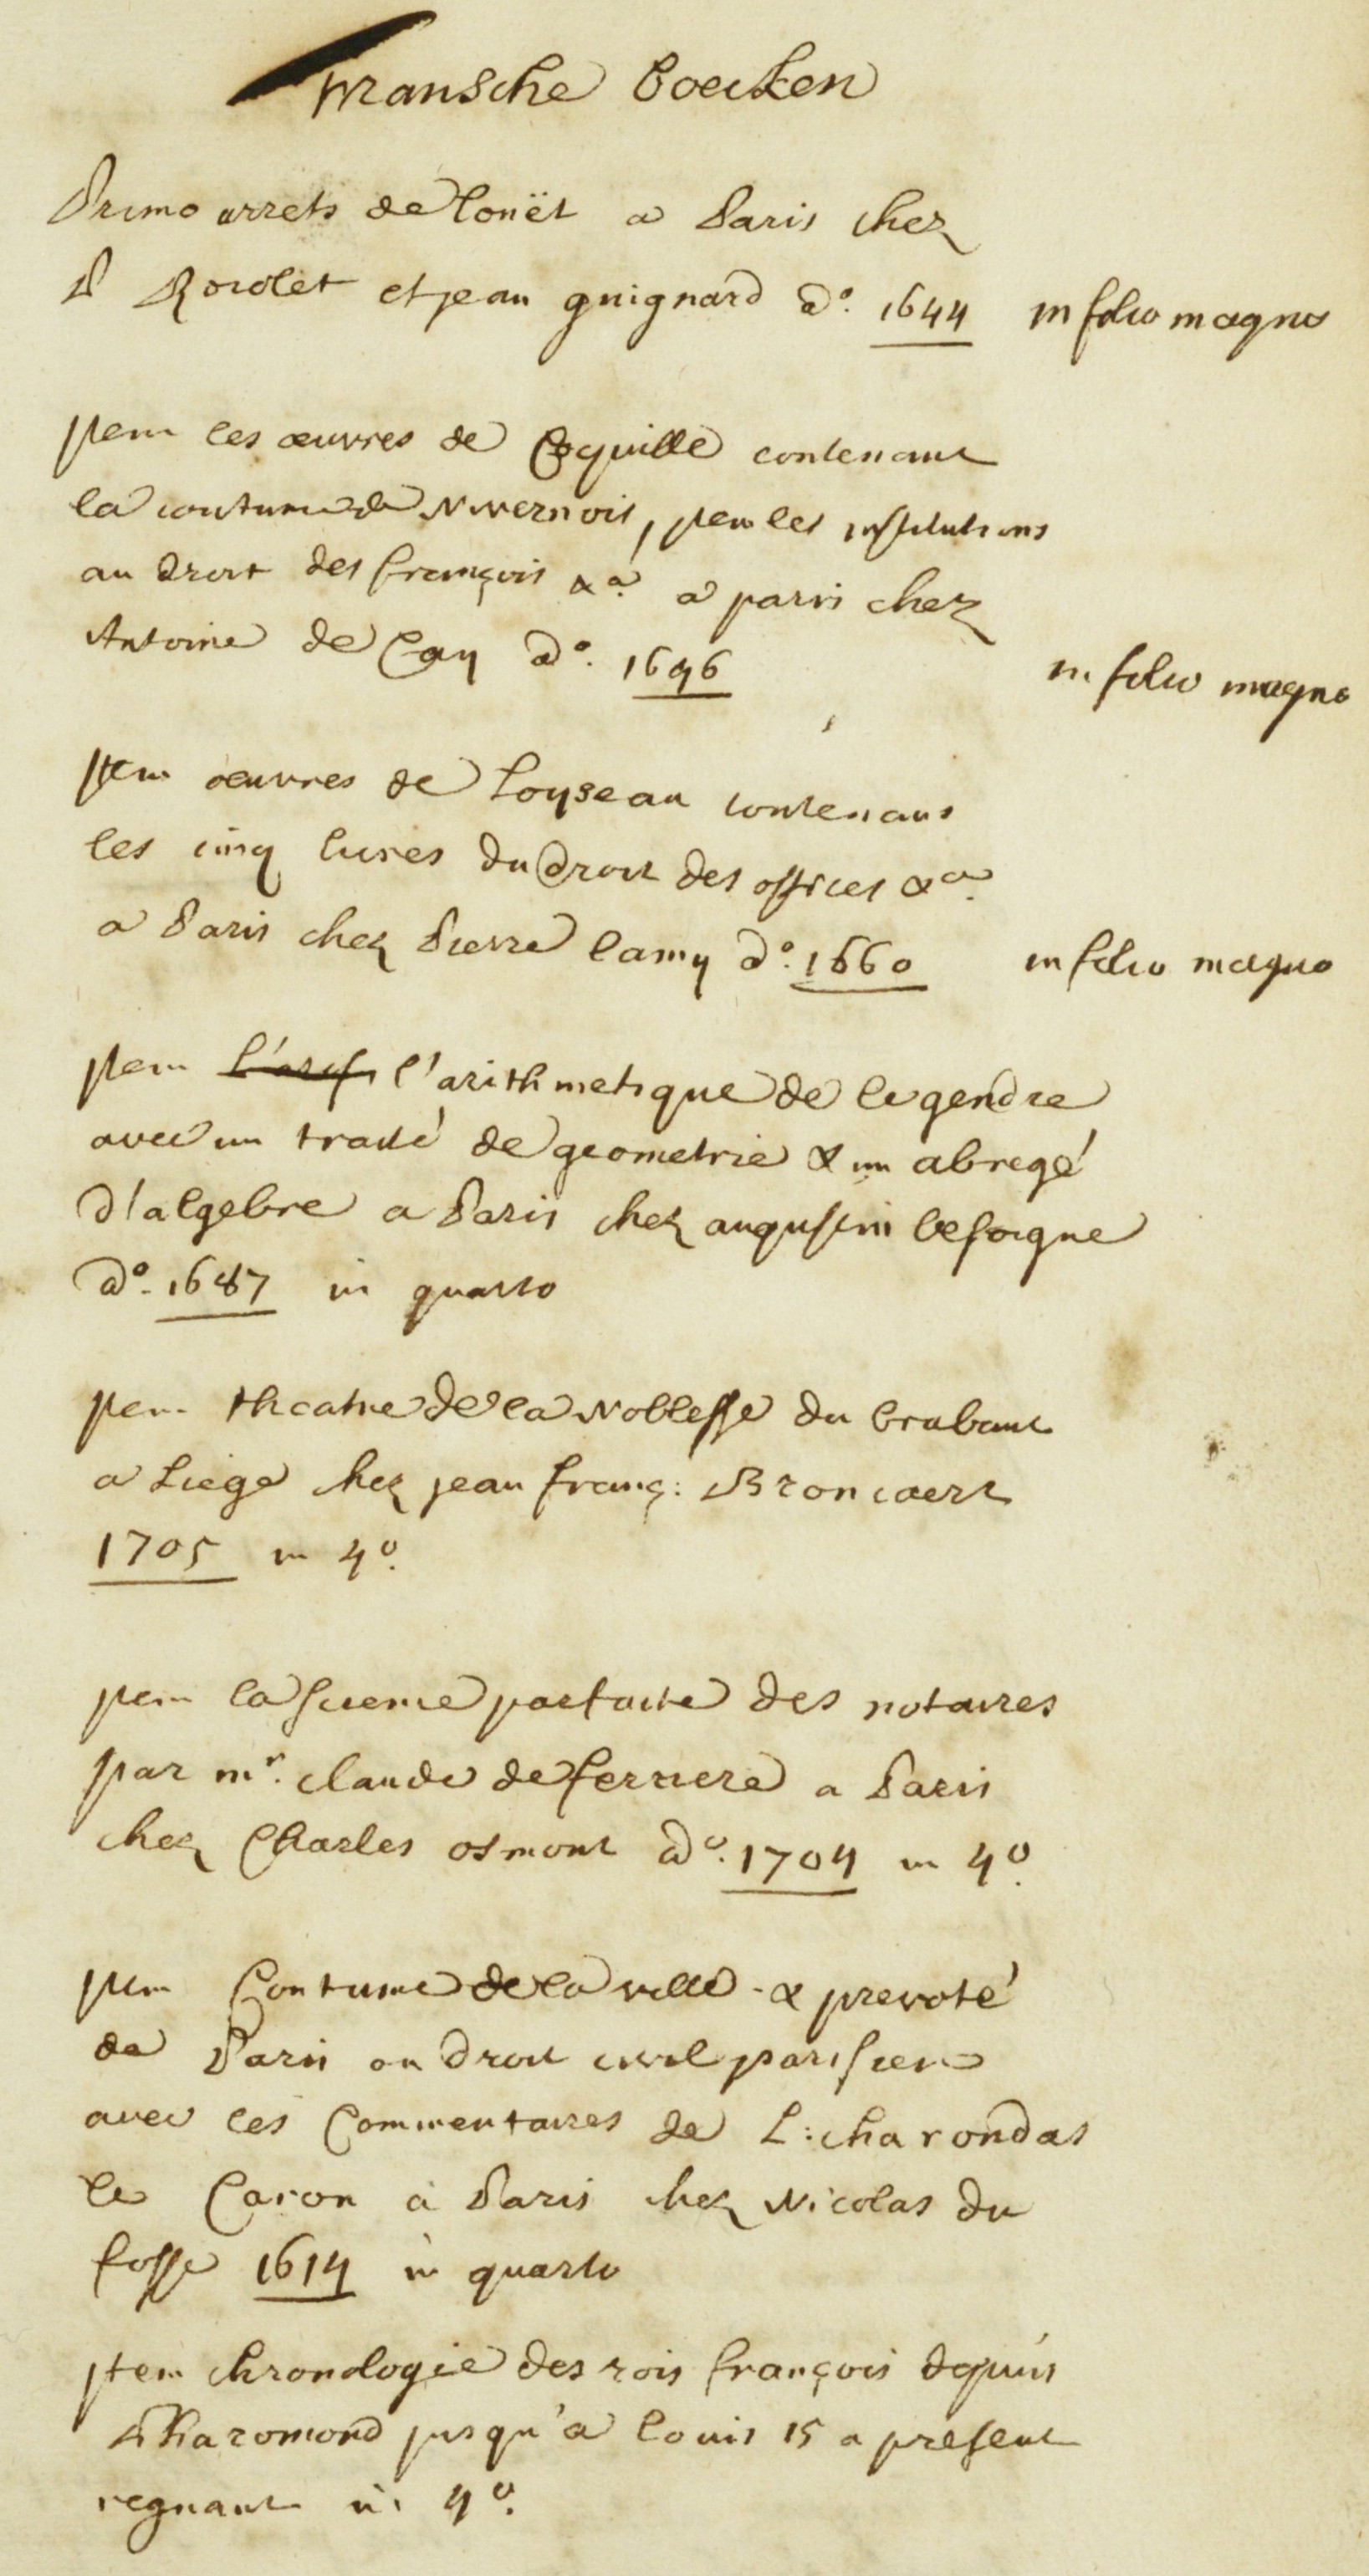 Fransche boecken
Primo arrets de Louët a Paris chez
P Rocolet et jean guignard a°. 1644 in folio magno
jtem les œuvres de Coquille contenant
la coutume de Nivernois, jtem les jnstitutions
au droit des françois &a. a paris chez
Antoine de Cay a°. 1646 in folio magno
jtem oeuvres de Loyseau contenans
les cinq livres du droit des offices &a.
a Paris chez Pierre lamy a°. 1660 in folio magno
jtem l'arithmetique de legendre
avec un traité de geometrie & un abregé
d'algebre a Paris chez augustin besoigne
a°. 1687 in quarto
jtem theatre de la Noblesse du brabant
a Liege chez jean franç: Broncaert
1705 in 4°.
jtem la science parfaite des notaires
par mr. claude de ferriere a Paris
chez Charles osmont a°. 1704 in 4°.
jtem Coutume de la ville & prevoté
de Paris ou droit civil parisien
avec les Commentaires de L: charondas
le Caron à Paris chez Nicolas du
fosse 1614 in quarto
jtem chronologie des rois françois depuis
Pharomond jusqu'a louis 15 a present
regnant in 4°.